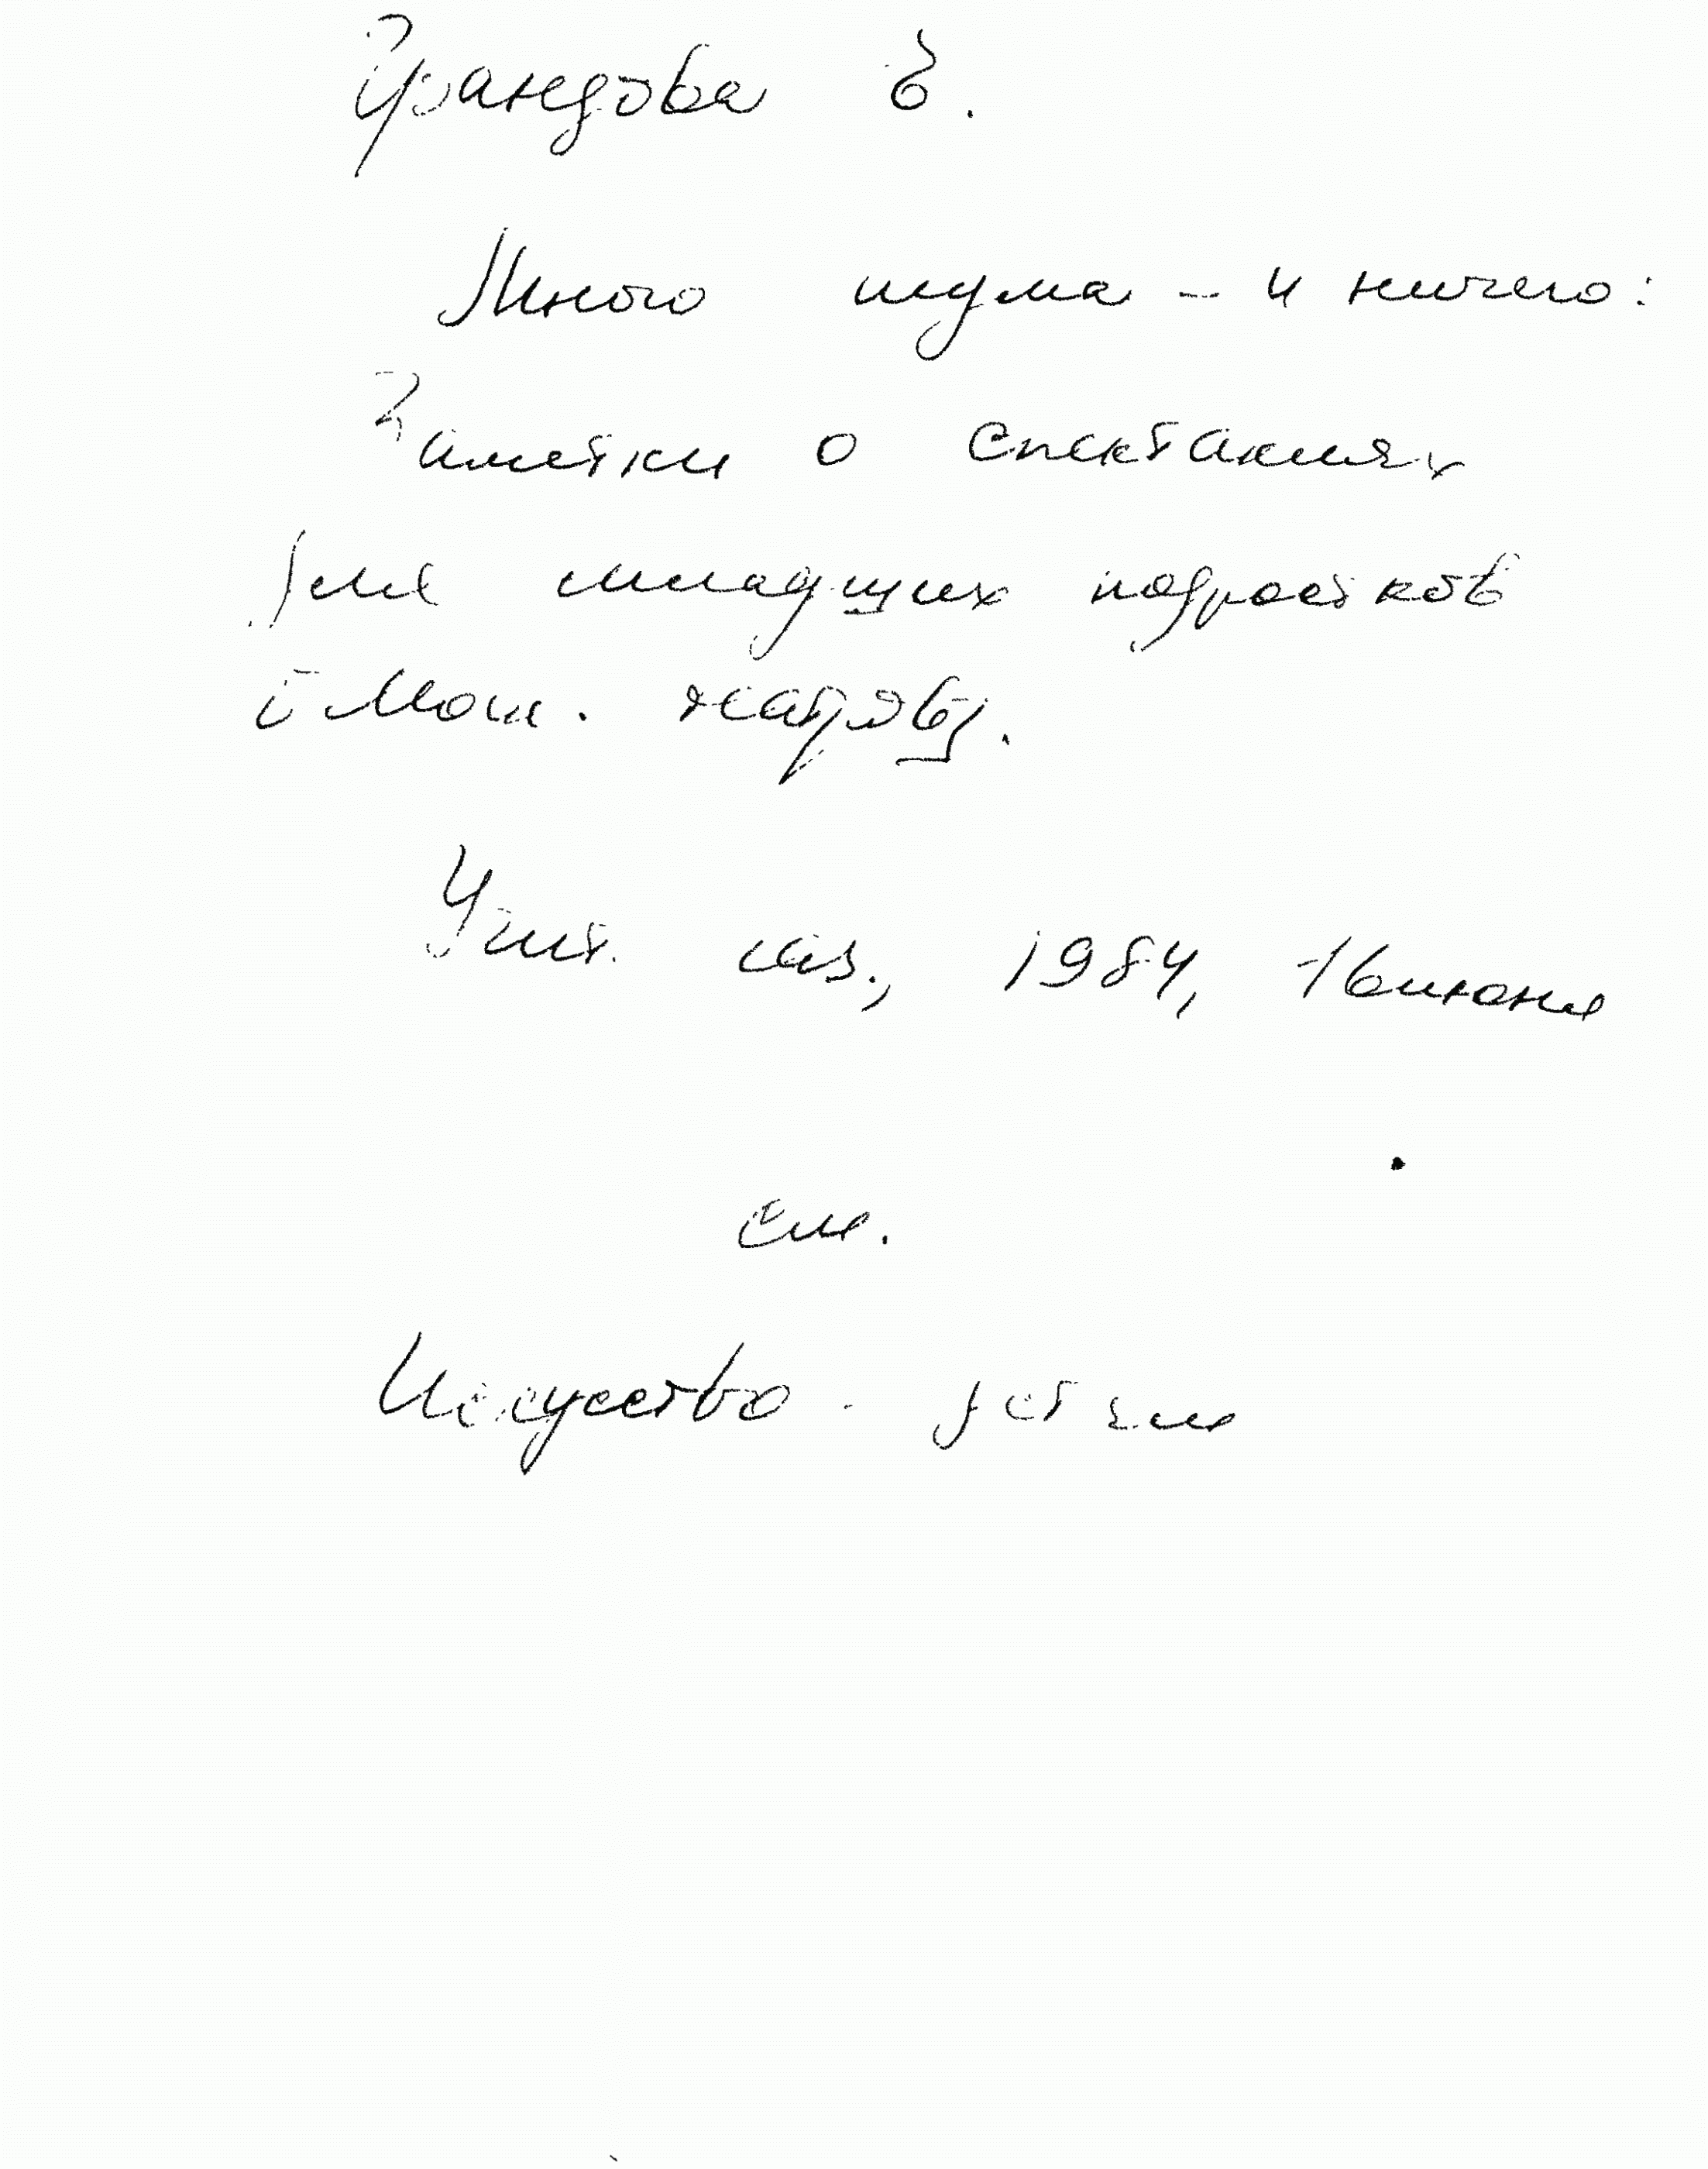 Грандова Е.
Много шума - и ничего:
Заметки о спектаклях
для младших подростков
в Мос. театрах.
Учит. газ., 1984, 16 июня
см.
Искусство - детям